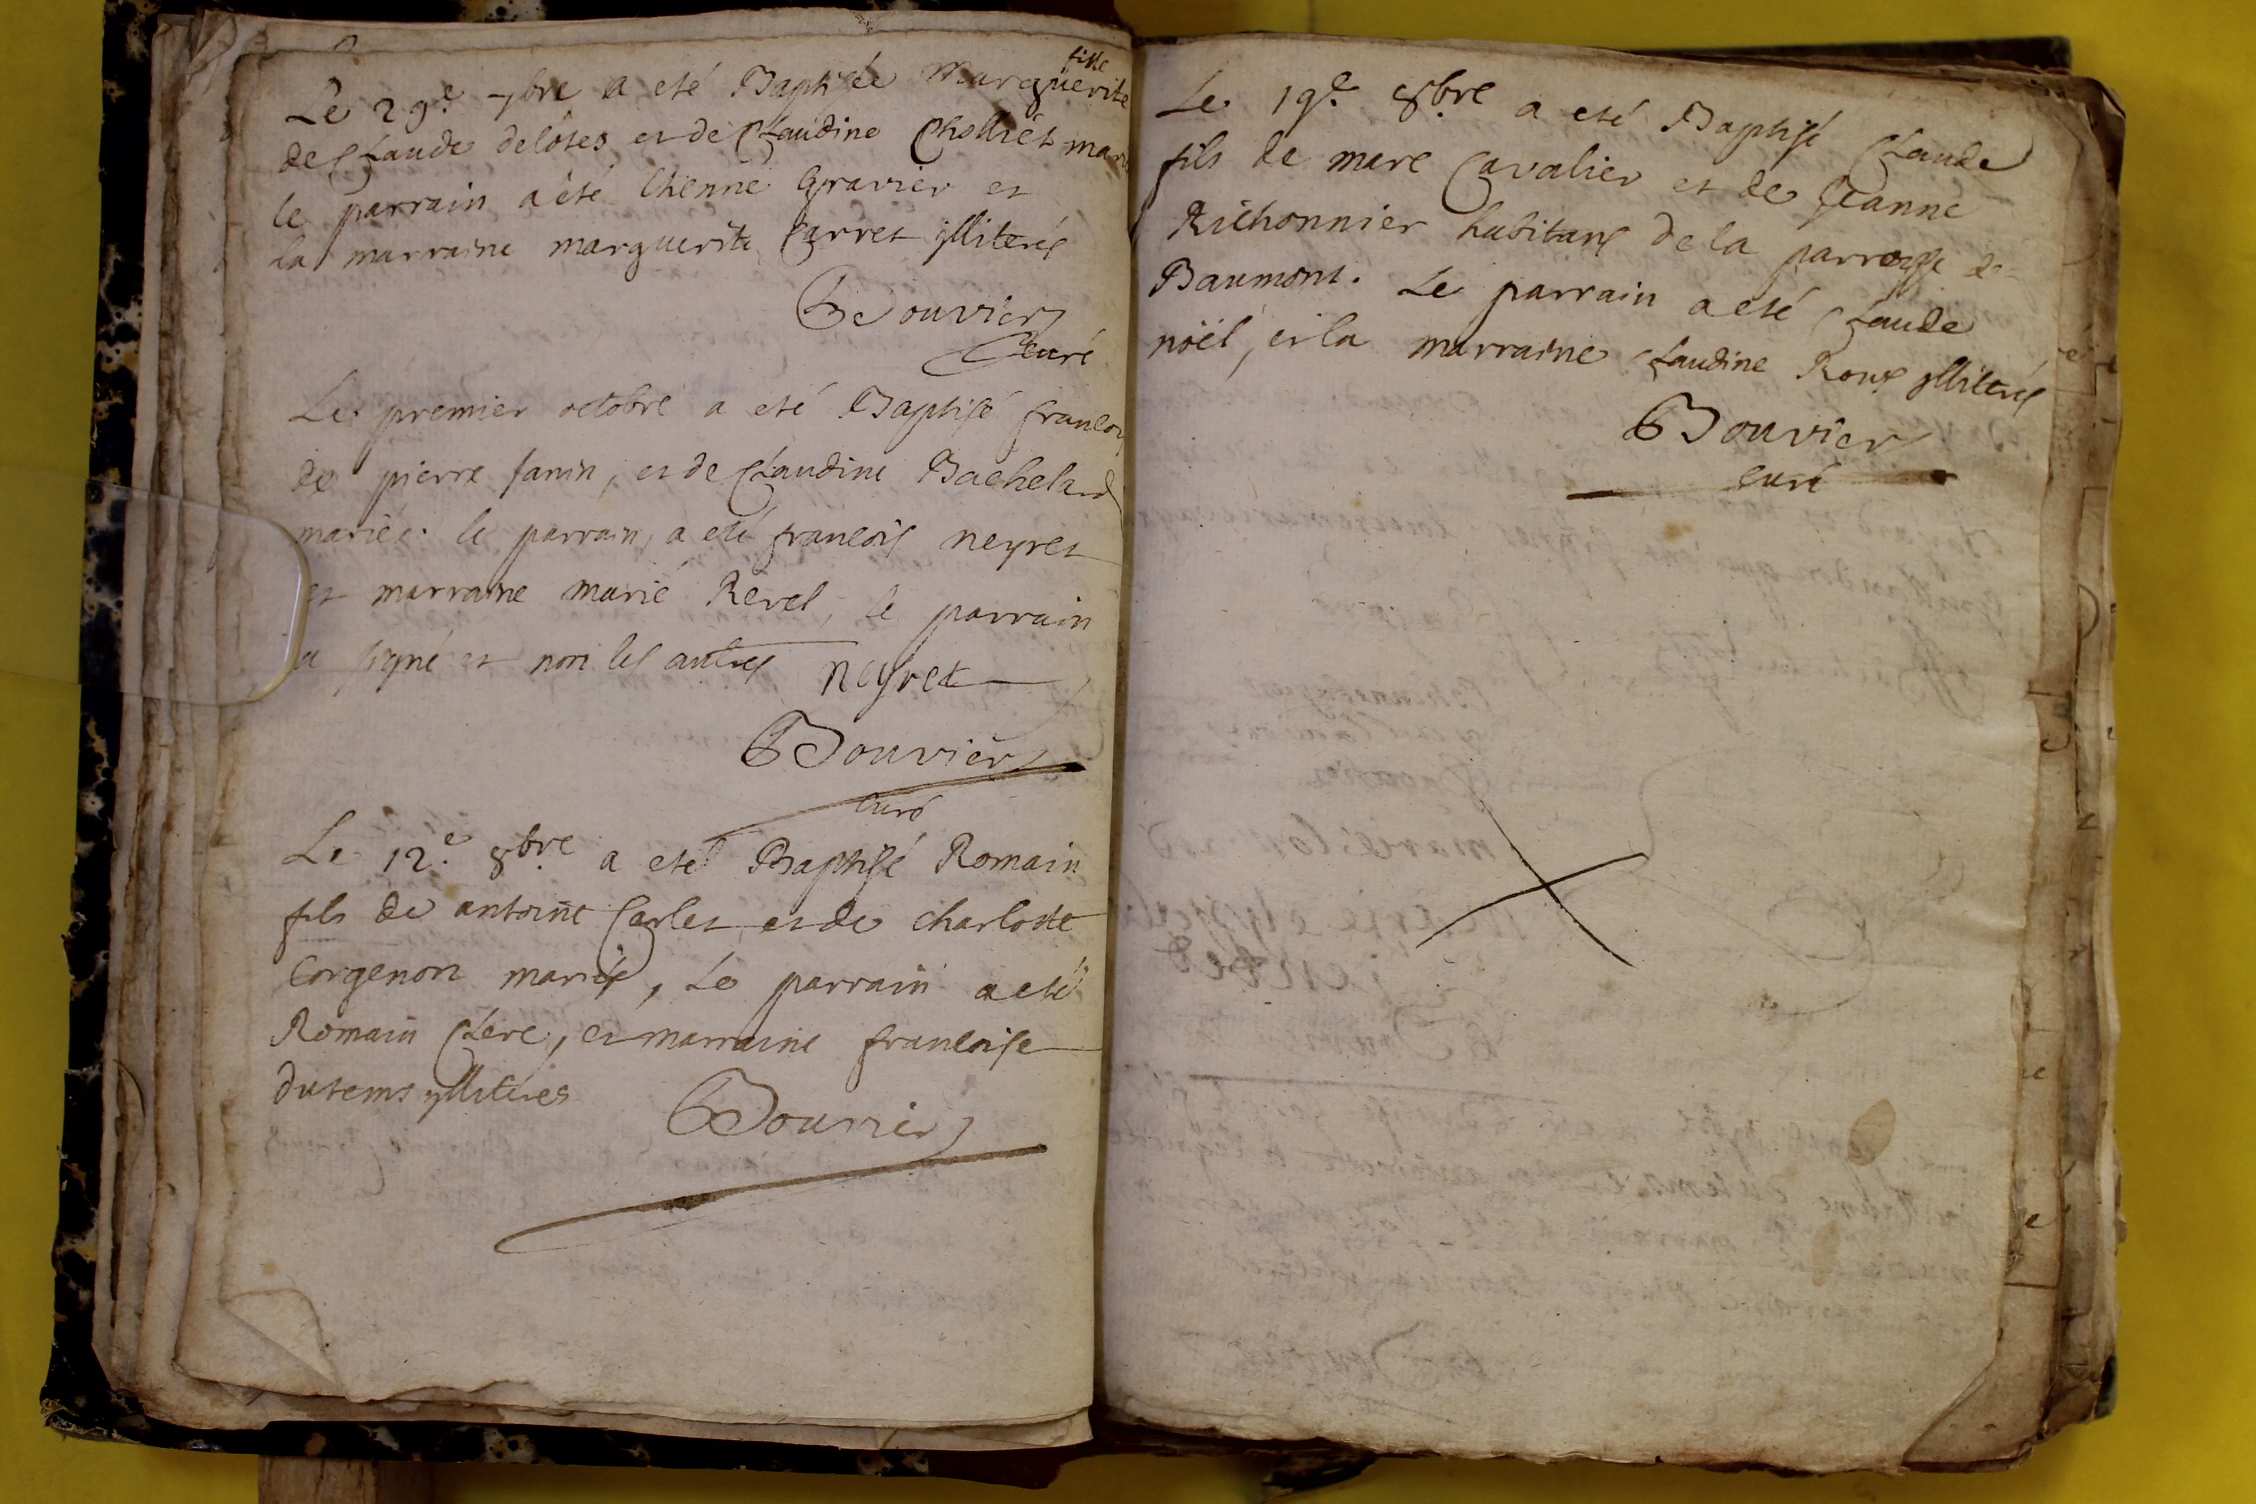 fille
Le 29.e 7bre a eté Baptisée Marguerite
de Claude delôtes et de Claudine Cholliet mari
le parrain a été Etienne Gravier et
la marraine marguerite Carret illiterés
Bouvier
curé
Le premier octobre a eté Baptisé francois
de pierre Janin, et de Claudine Bachelard
mariés. le parrain, a eté francois neyret
et marraine marie Revel, le parrain
a signé et non les autres neyret
Bouvier
curé
Le 12.e 8bre a eté Baptisé Romain
fils de antoine Carlet et de charlotte
Corgenon mariés, Le parrain a eté
Romain Clere, et marraine francoise
dutems illiteres
Bouvier
Le 19.e 8bre a eté Baptisé Claude
fils de marc Cavalier et de Jeanne
Richonnier habitans de la parroisse de
Baumont. Le parrain a eté Claude
noël, et la marraine Claudine Roux illiterés
Bouvier
curé